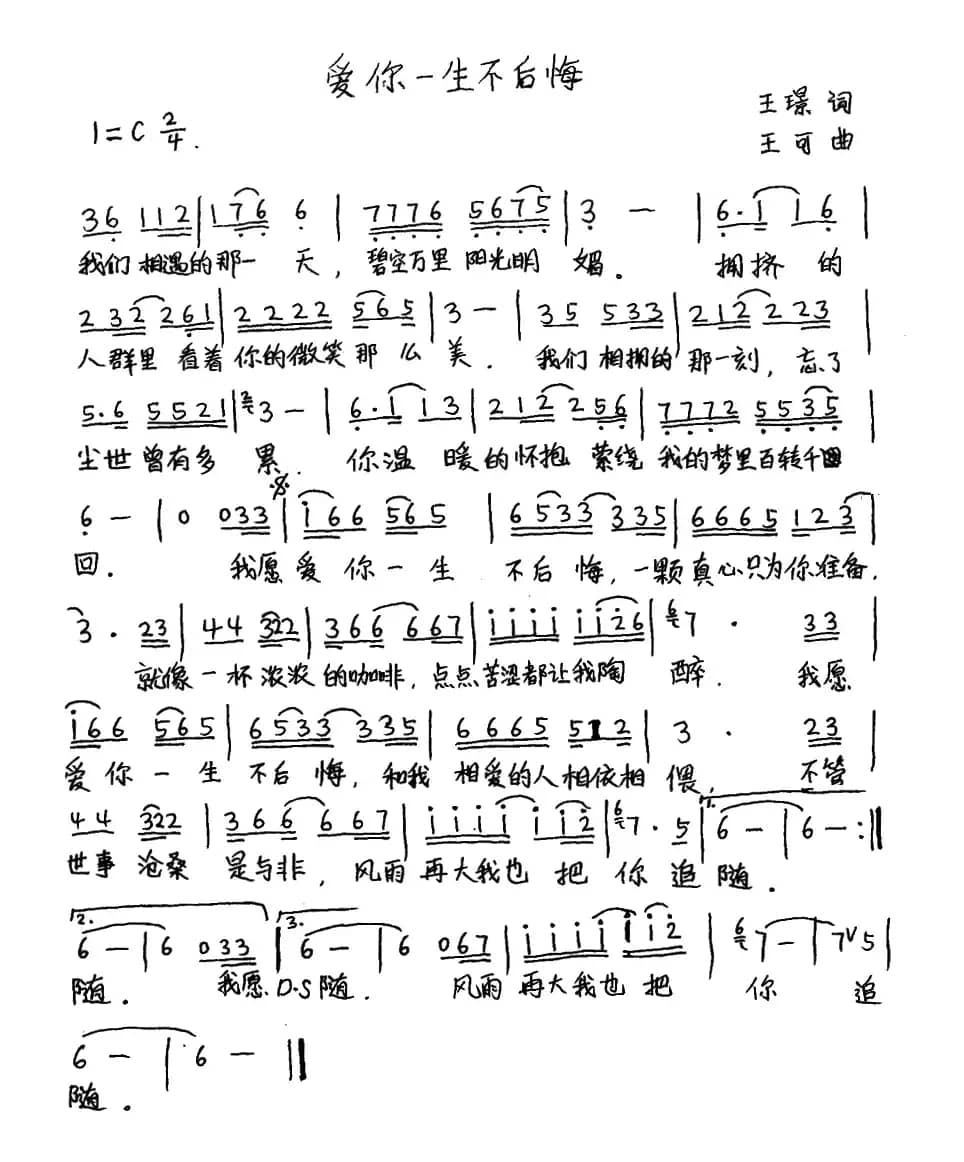 爱你一生不后悔
王璟 词
1=C 2/4.
王可 曲
36 112 | 176 6 | 7776 5675 | 3 — | 6·1 16 |
我们相遇的那一天，碧空万里阳光明媚. 拥挤的
232 261 | 2222 565 | 3 — | 35 533 | 212 223 |
人群里看着你的微笑那么美. 我们相拥的那一刻，忘了
5·6 5521 | 3 — | 6·1 13 | 212 256 | 7772 5535 |
尘世曾有多累. 你温暖的怀抱萦绕我的梦里百转千回
6 — | 0 033 | i66 565 | 6533 335 | 6665 123 |
回. 我愿爱你一生不后悔，一颗真心只为你准备.
3 · 23 | 44 322 | 366 667 | iiii ii26 | 67 · 33 |
就像一杯浓浓的咖啡，点点苦涩都让我陶醉. 我愿
i66 565 | 6533 335 | 6665 512 | 3 · 23 |
爱你一生不后悔，和我相爱的人相依相偎，不管
44 322 | 366 667 | iiii ii2 | 67· 5 | 1. 6 — | 6 — :‖
世事沧桑是与非，风雨再大我也把你追随.
2. 6 — | 6 033 | 3. 6 — | 6 067 | iiii ii2 | 67 — | 7∨5 |
随. 我愿 D.S 随. 风雨再大我也把你追
6 — | 6 — ‖
随.